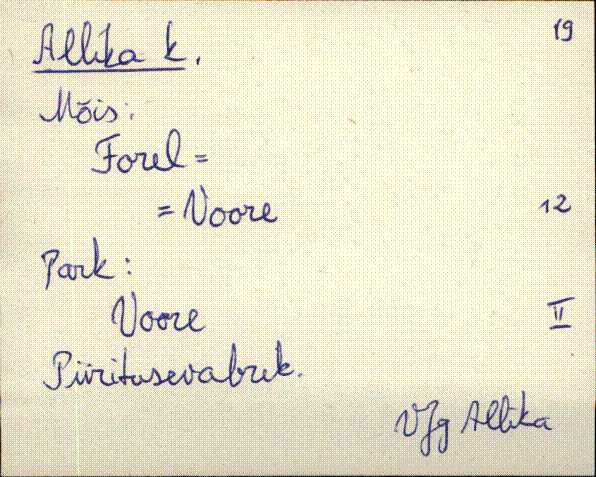 19
Allika k.
Mõis:
Forel =
= Voore 12
Park:
Voore II
Piiritusevabrik.
VJg Allika